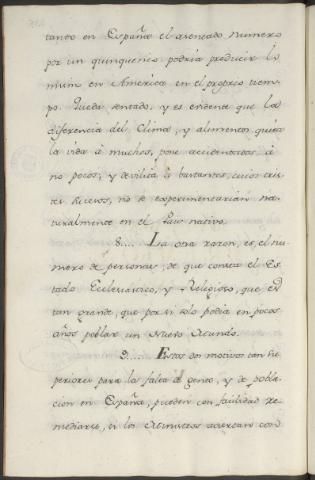 tanto en España el asentado Numero
por un quinquenio podria producir lo
mismo en America en el propio tiem-
po. Queda sentado, y es evidente que la
diferencia del Clima, y alimentos quita
la vida á muchos, pone accidentados á
no pocos, y devilita á bastantes, cuios tris-
tes sucesos, no se experimentarian na-
turalmente en el Pais nativo.
8.... La otra razon, es, el nu-
mero de personas, de que consta el Es-
tado Ecclesiastico, y Religioso, que es
tan grande, que por si solo podia en pocos
años poblar un Nuevo Mundo.
9.... Estos dos motivos tan su
periores para la falta de gente, y de pobla-
cion en España, pueden con facilidad re-
mediarse, si los Ministros aciertan con